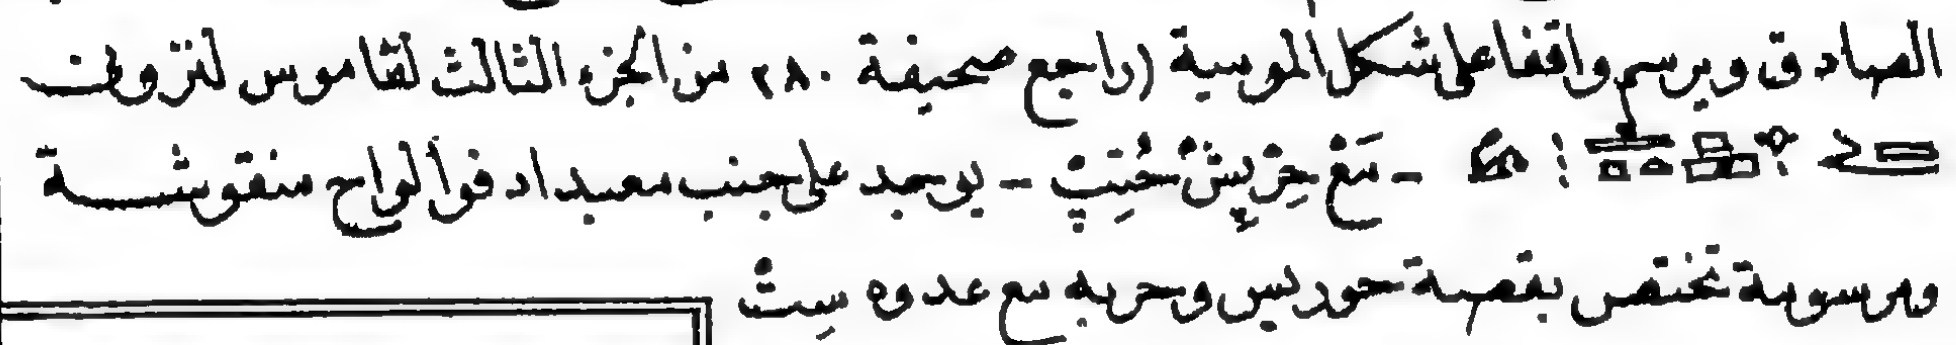 الصادق ويرسم واقفا على شكل الموسية (راجع صحيفة ٢٨٠ من الجزء الثالث لقاموس لنزونت
- مَعْ حِرْ پِشْ خُنِتِ - يوجد على جنب معبد ادفو ألواح منقوشة
ومرسومة تختص بقصة حوريس وحربه مع عدوه سِتْ